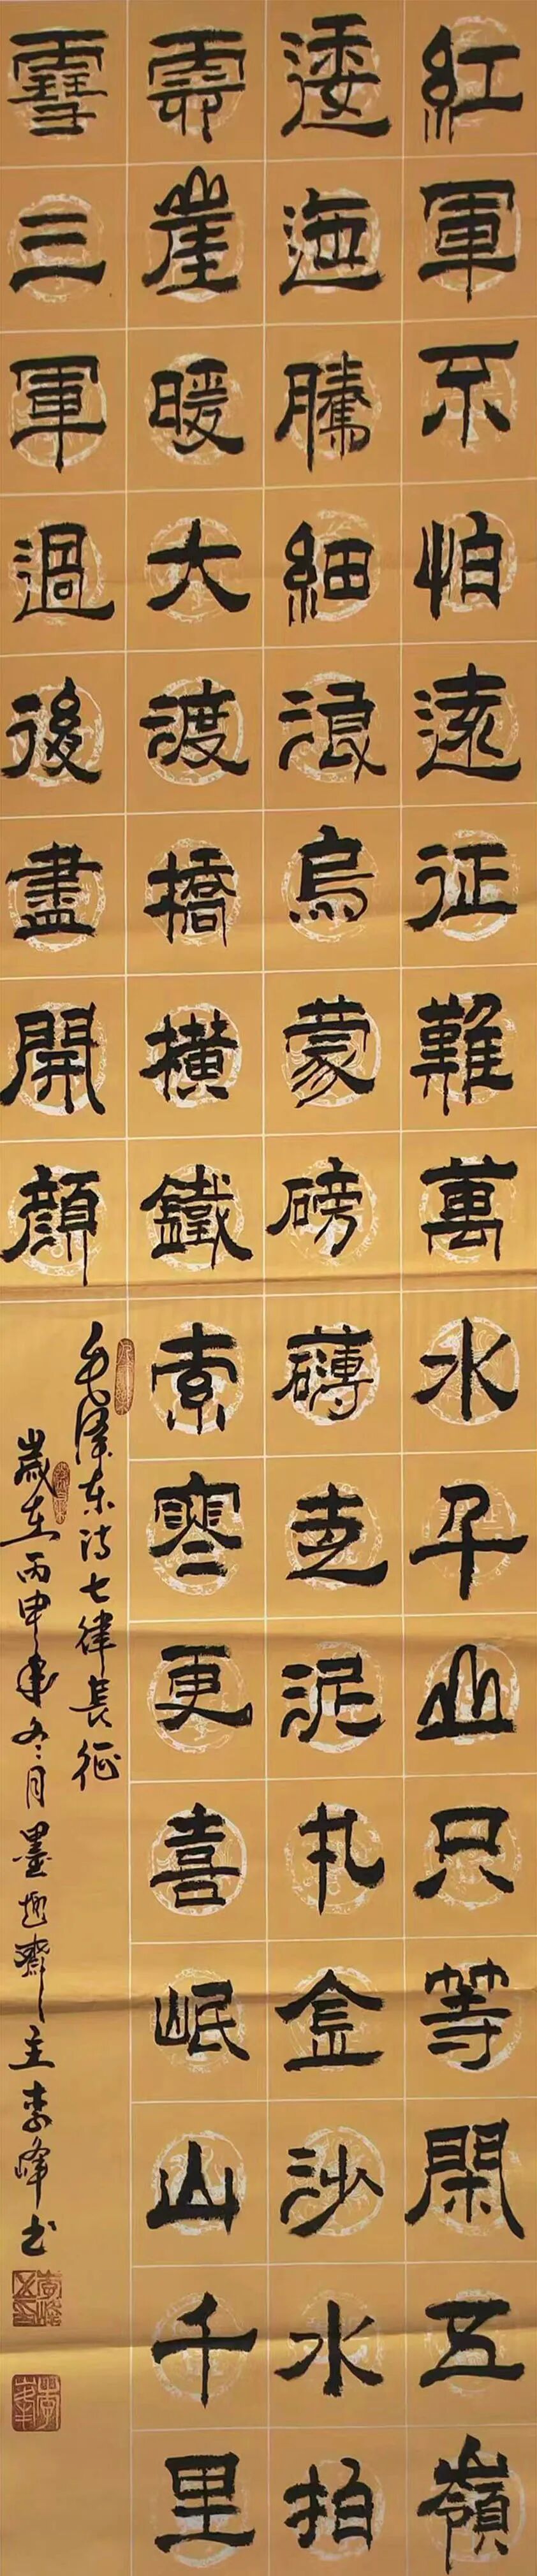 紅軍不怕遠征難萬水千山只等閑五嶺
逶迤騰細浪烏蒙磅礴走泥丸金沙水拍
雲崖暖大渡橋橫鐵索寒更喜岷山千里
雪三軍過後盡開顏
毛澤東詩七律長征
歲在丙申年冬月墨趣齋主李峰书